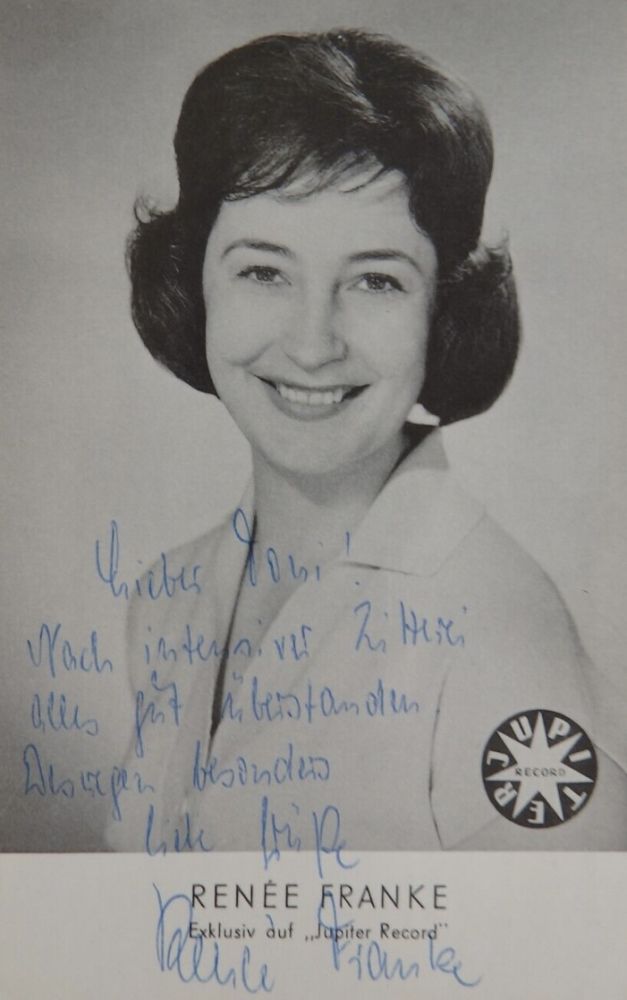 Lieber Toni!
Nach intensiver Zitterei
alles gut überstanden.
Deswegen besonders
liebe Grüße
JUPITER
RECORD
RENÉE FRANKE
Exklusiv auf „Jupiter Record"
Renée Franke